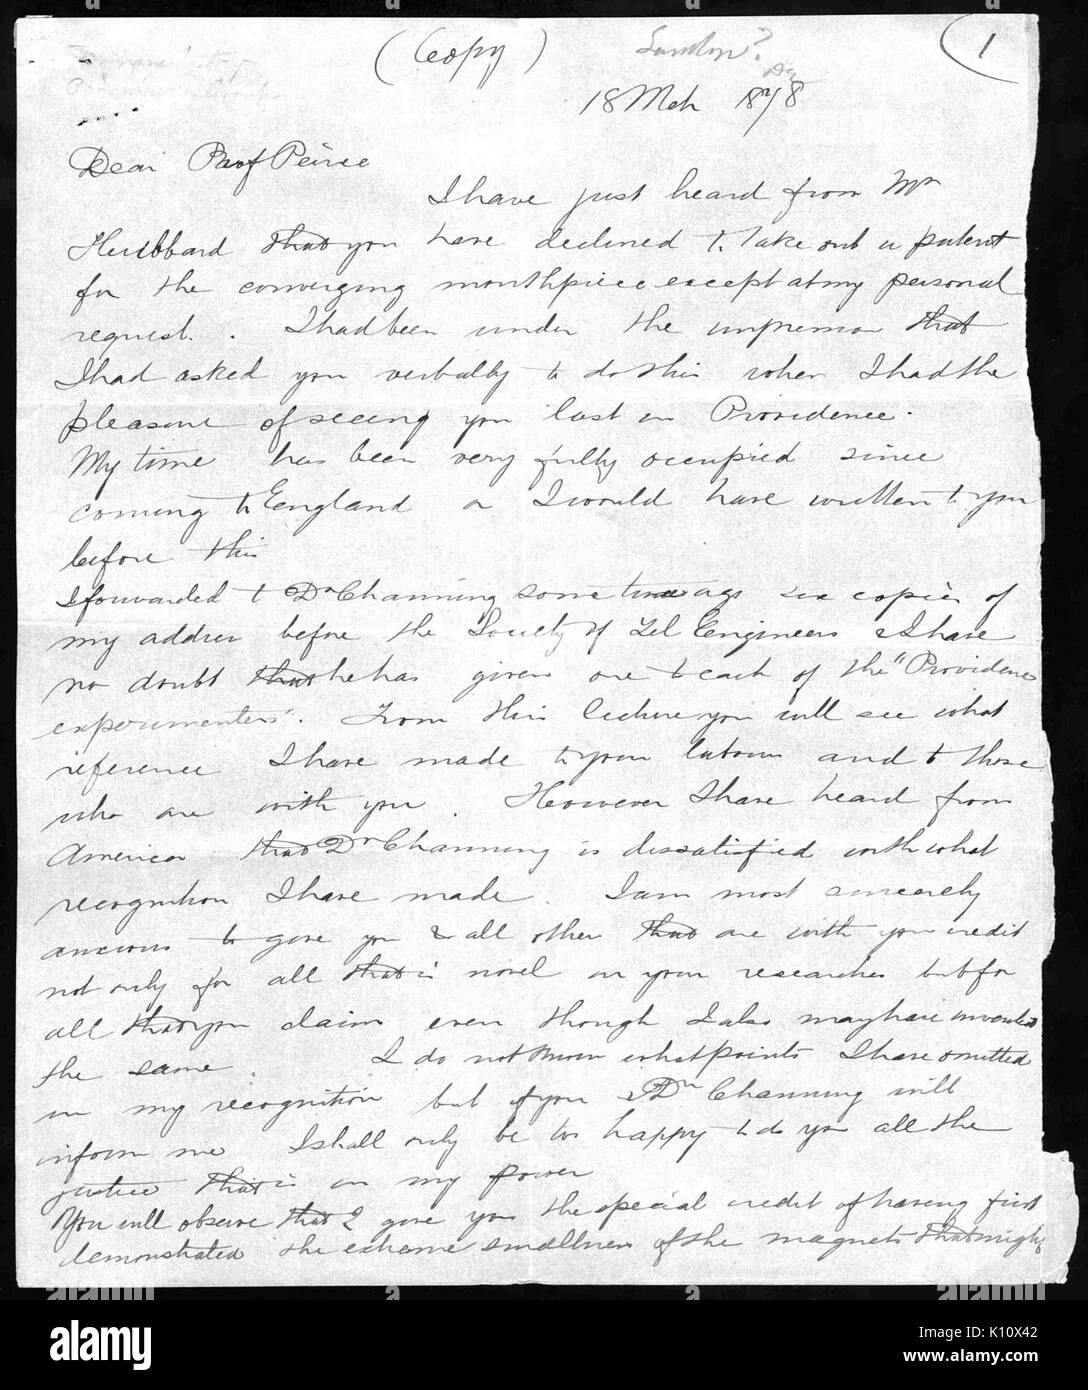 (Copy) London? 1
18 Mch 1878
Dear Prof Peirce
I have just heard from Mr
Hubbard that you have declined to take out a patent
for the converging mouthpiece except at my personal
request. I had been under the impression that
I had asked you verbally to do this when I had the
pleasure of seeing you last in Providence.
My time has been very fully occupied since
coming to England or I would have written to you
before this
I forwarded to Dr Channing some time ago six copies of
my address before the Society of Tel Engineers & I have
no doubt that he has given one to each of the "Providence
experimenters". From this lecture you will see what
reference I have made to your labours and to those
who are with you. However I have heard from
America that Dr Channing is dissatisfied with what
recognition I have made. I am most sincerely
anxious to give you & all other that are with you credit
not only for all that is novel in your researches but for
all that you claim even though I also may have invented
the same. I do not know what points I have omitted
in my recognition but if you & Dr Channing will
inform me I shall only be too happy to do you all the
justice that is in my power
You will observe that I give you the special credit of having first
demonstrated the extreme smallness of the magnets that might
alamy
a
alamy
Image ID: K10X42
www.alamy.com